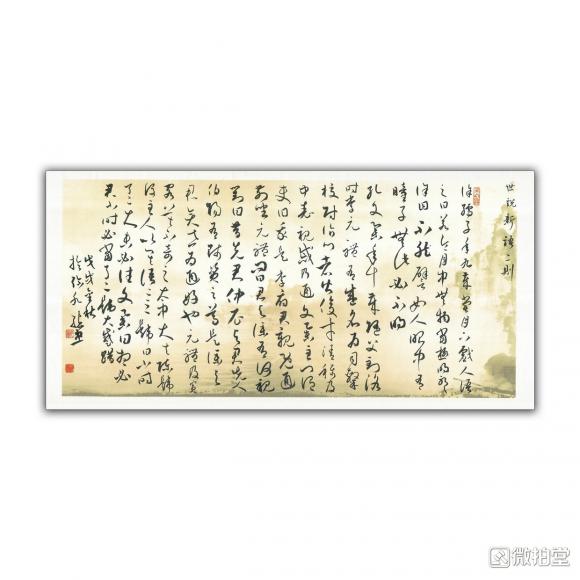 世說新語二則
徐孺子年九歲嘗月下戲人語
之曰若令月中無物當極明邪
徐曰不然譬如人眼中有
瞳子無此必不明
孔文舉年十歲隨父到洛
時李元禮有盛名為司隸
校尉詣門者皆俊才清稱及
中表親戚乃通文舉至門謂
吏曰我是李府君親既通
前坐元禮問曰君與僕有何親
對曰昔先君仲尼與君先人
伯陽有師資之尊是僕與
君奕世為通好也元禮及賓
客莫不奇之太中大夫陳韙
後至人以其語語之韙曰小時
了了大未必佳文舉曰想必
君小時必當了了韙大踧踖
戊戌金秋
微拍堂